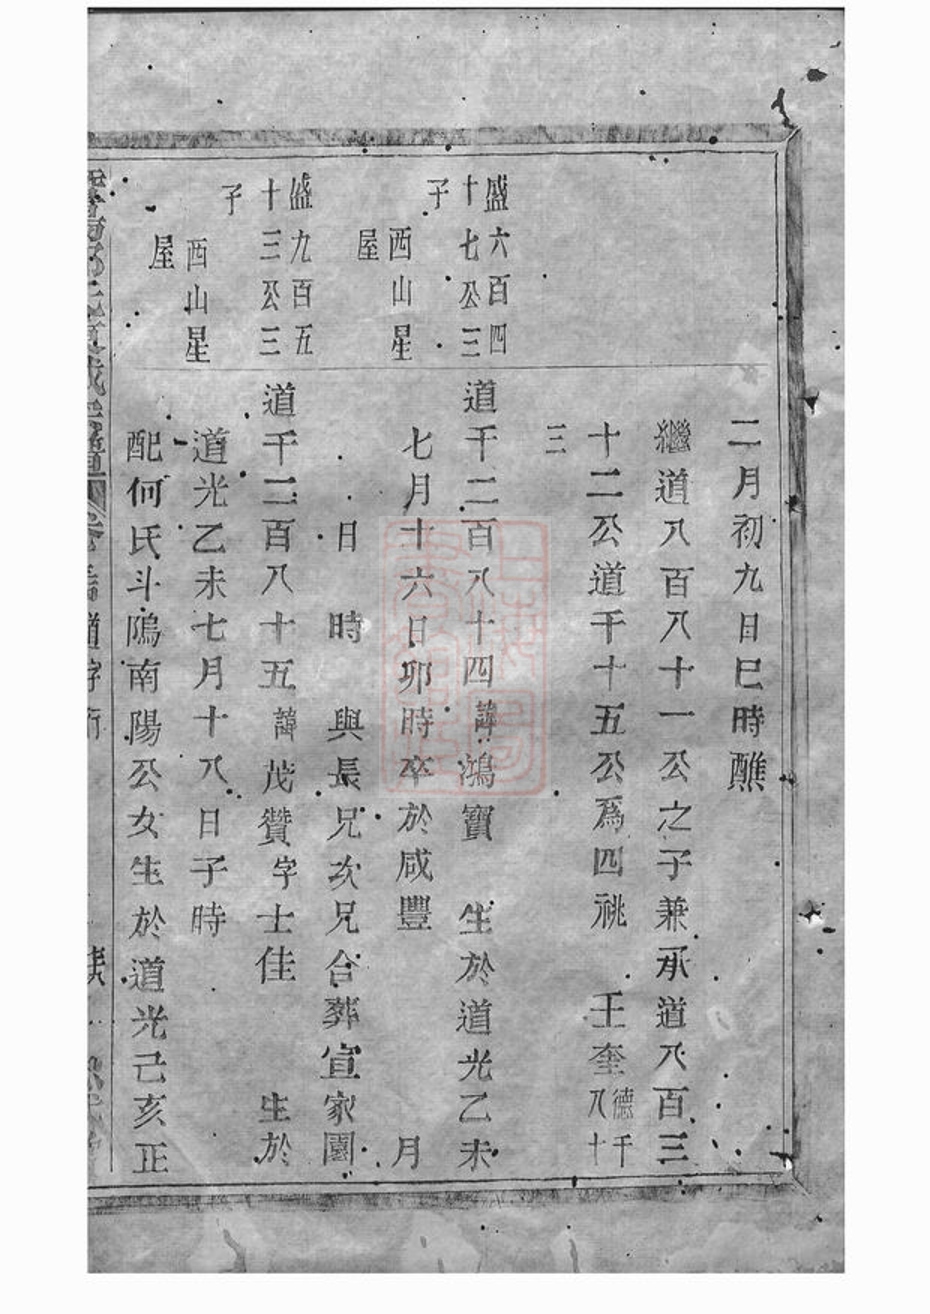 二月初九日巳時醮
繼道八百八十一公之子兼承道八百三
十二公道千十五公爲四祧 王奎德千八十
三
盛六百四十七公三子
西山星屋
道千二百八十四諱鴻寶 生於道光乙未
七月十六日卯時卒於咸豐 月
日 時 與長兄次兄合葬宣家園
盛九百五十三公三子
西山星屋
道千二百八十五諱茂贊字士佳 生於
道光乙未七月十八日子時
配何氏斗鳴南陽公女生於道光己亥正